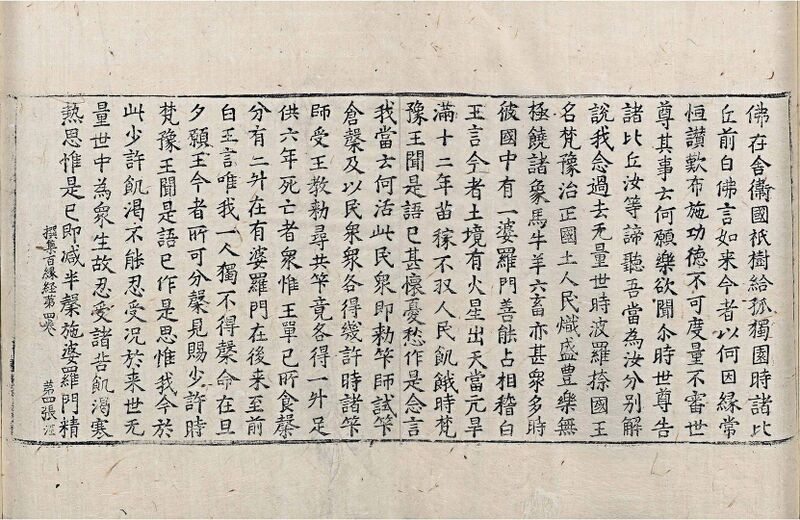 佛在舍衞國祇樹給孤獨園時諸比
丘前白佛言如来今者以何因縁常
恒讃歎布施功徳不可度量不審世
尊其事云何願樂欲聞尒時世尊告
諸比丘汝等諦聽吾當為汝分別解
說我念過去无量世時波羅㮈國王
名梵豫治正國土人民熾盛豊樂無
極饒諸象馬牛羊六畜亦甚衆多時
彼國中有一婆羅門善能占相稽白
王言今者土境有火星出天當元旱
滿十二年苗稼不収人民飢餓時梵
豫王聞是語已甚懷憂愁作是念言
我當云何活此民衆即勅笇師試笇
倉糓及以民衆衆各得幾許時諸笇
師受王教勅尋共笇竟各得一升足
供六年死亡者衆惟王單已所食糓
分有二升在有婆羅門在後来至前
白王言唯我一人獨不得糓命在旦
夕願王今者所可分糓見賜少許時
梵豫王聞是語已作是思惟我今於
此少許飢渴不能忍受況於来世无
量世中為衆生故忍受諸苦飢渴寒
熱思惟是已即减半糓施婆羅門精
撰集百縁経第四卷 第四張